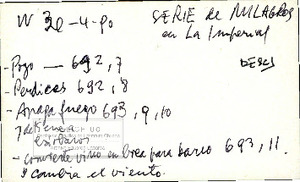 W 3e-4-Po
SERIE de MILAGROS
en La Imperial
DESCS
-Pozo — 692, 7
-Perdices 692, 8
-Apaga fuego 693, 9, 10
- convierte vino en brea para barco 693, 11.
y cambia el viento.